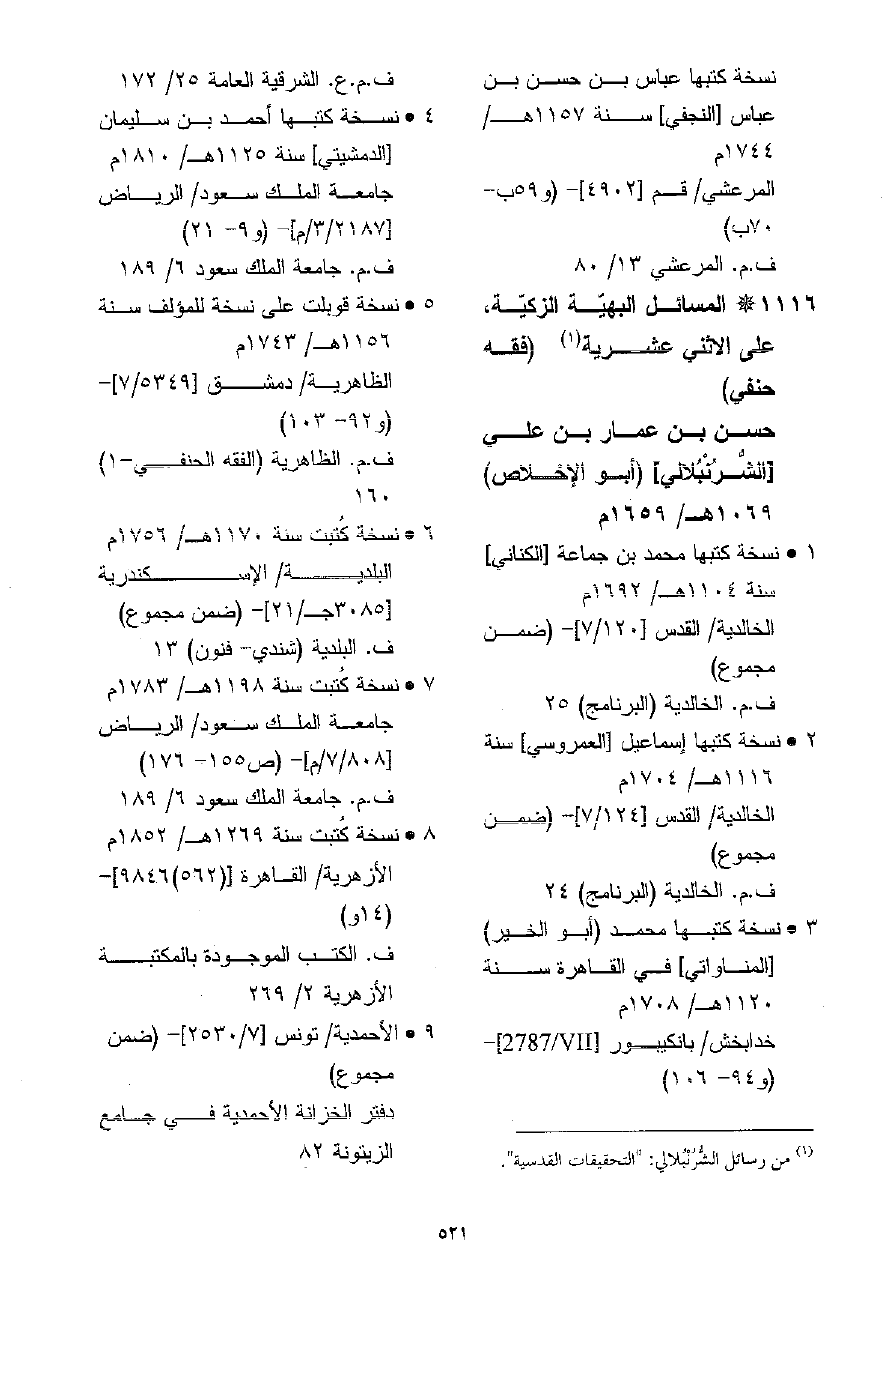 نسخة كتبها عباس بن حسن بن
عباس [النجفي] سنة ١١٥٧هـ/
١٧٤٤م
المرعشي/ قم [٤٩٠٢]- (و٥٩ب-
٧٠ب)
ف.م. المرعشي ١٣/ ٨٠
١١١٦ * المسائل البهيّة الزكيّة،
على الاثني عشرية(١) (فقه
حنفي)
حسن بن عمار بن علي
[الشُّرُنْبُلالي] (أبو الإخلاص)
١٠٦٩هـ/ ١٦٥٩م
١ • نسخة كتبها محمد بن جماعة [الكناني]
سنة ١١٠٤هـ/ ١٦٩٢م
الخالدية/ القدس [٧/١٢٠]- (ضمن
مجموع)
ف.م. الخالدية (البرنامج) ٢٥
٢ • نسخة كتبها إسماعيل [العمروسي] سنة
١١١٦هـ/ ١٧٠٤م
الخالدية/ القدس [٧/١٢٤]- (ضمن
مجموع)
ف.م. الخالدية (البرنامج) ٢٤
٣ • نسخة كتبها محمد (أبو الخير)
[المناواتي] في القاهرة سنة
١١٢٠هـ/ ١٧٠٨م
خدابخش/ بانكيبور [2787/VII]-
(و٩٤- ١٠٦)
(١) من رسائل الشُّرُنْبُلالي: "التحقيقات القدسية".
ف.م.ع. الشرقية العامة ٢٥/ ١٧٢
٤ • نسخة كتبها أحمد بن سليمان
[الدمشيتي] سنة ١١٢٥هـ/ ١٨١٠م
جامعة الملك سعود/ الرياض
[٣/٢١٨٧/م]- (و٩- ٢١)
ف.م. جامعة الملك سعود ٦/ ١٨٩
٥ • نسخة قوبلت على نسخة للمؤلف سنة
١١٥٦هـ/ ١٧٤٣م
الظاهرية/ دمشق [٧/٥٣٤٩]-
(و٩٢- ١٠٣)
ف.م. الظاهرية (الفقه الحنفي-١)
١٦٠
٦ • نسخة كُتبت سنة ١١٧٠هـ/ ١٧٥٦م
البلدية/ الإسكندرية
[٣٠٨٥جـ/٢١]- (ضمن مجموع)
ف. البلدية (شندي- فنون) ١٣
٧ • نسخة كُتبت سنة ١١٩٨هـ/ ١٧٨٣م
جامعة الملك سعود/ الرياض
[٧/٨٠٨/م]- (ص١٥٥- ١٧٦)
ف.م. جامعة الملك سعود ٦/ ١٨٩
٨ • نسخة كُتبت سنة ١٢٦٩هـ/ ١٨٥٢م
الأزهرية/ القاهرة [(٥٦٢)٩٨٤٦]-
(١٤و)
ف. الكتب الموجودة بالمكتبة
الأزهرية ٢/ ٢٦٩
٩ • الأحمدية/ تونس [٢٥٣٠/٧]- (ضمن
مجموع)
دفتر الخزانة الأحمدية في جامع
الزيتونة ٨٢
٥٢١